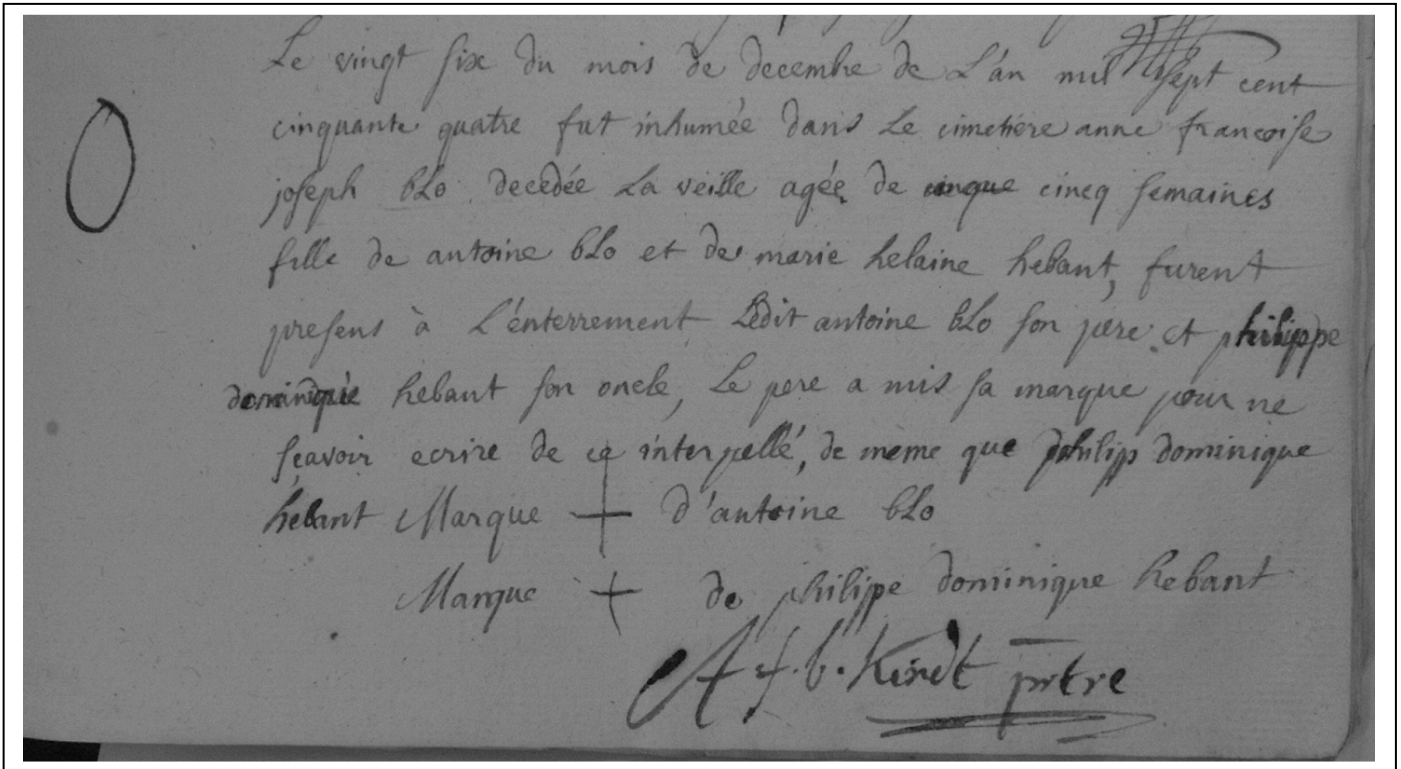 Le vingt six du mois de decembre de L'an mil sept cent
cinquante quatre fut inhumée dans Le cimetiére anne francoise
joseph bLo decedée La veille agée de cinque cincq semaines
fille de antoine bLo et de marie helaine hebant, furent
presens à L'énterrement Ledit antoine bLo son pere et philippe
dominique hebant son oncle, Le pere a mis sa marque pour ne
sçavoir ecrire de ce interpellé, de meme que philipp dominique
hebant Marque + d'antoine bLo
Marque + de philippe dominique hebant
A f. b. Kindt prtre